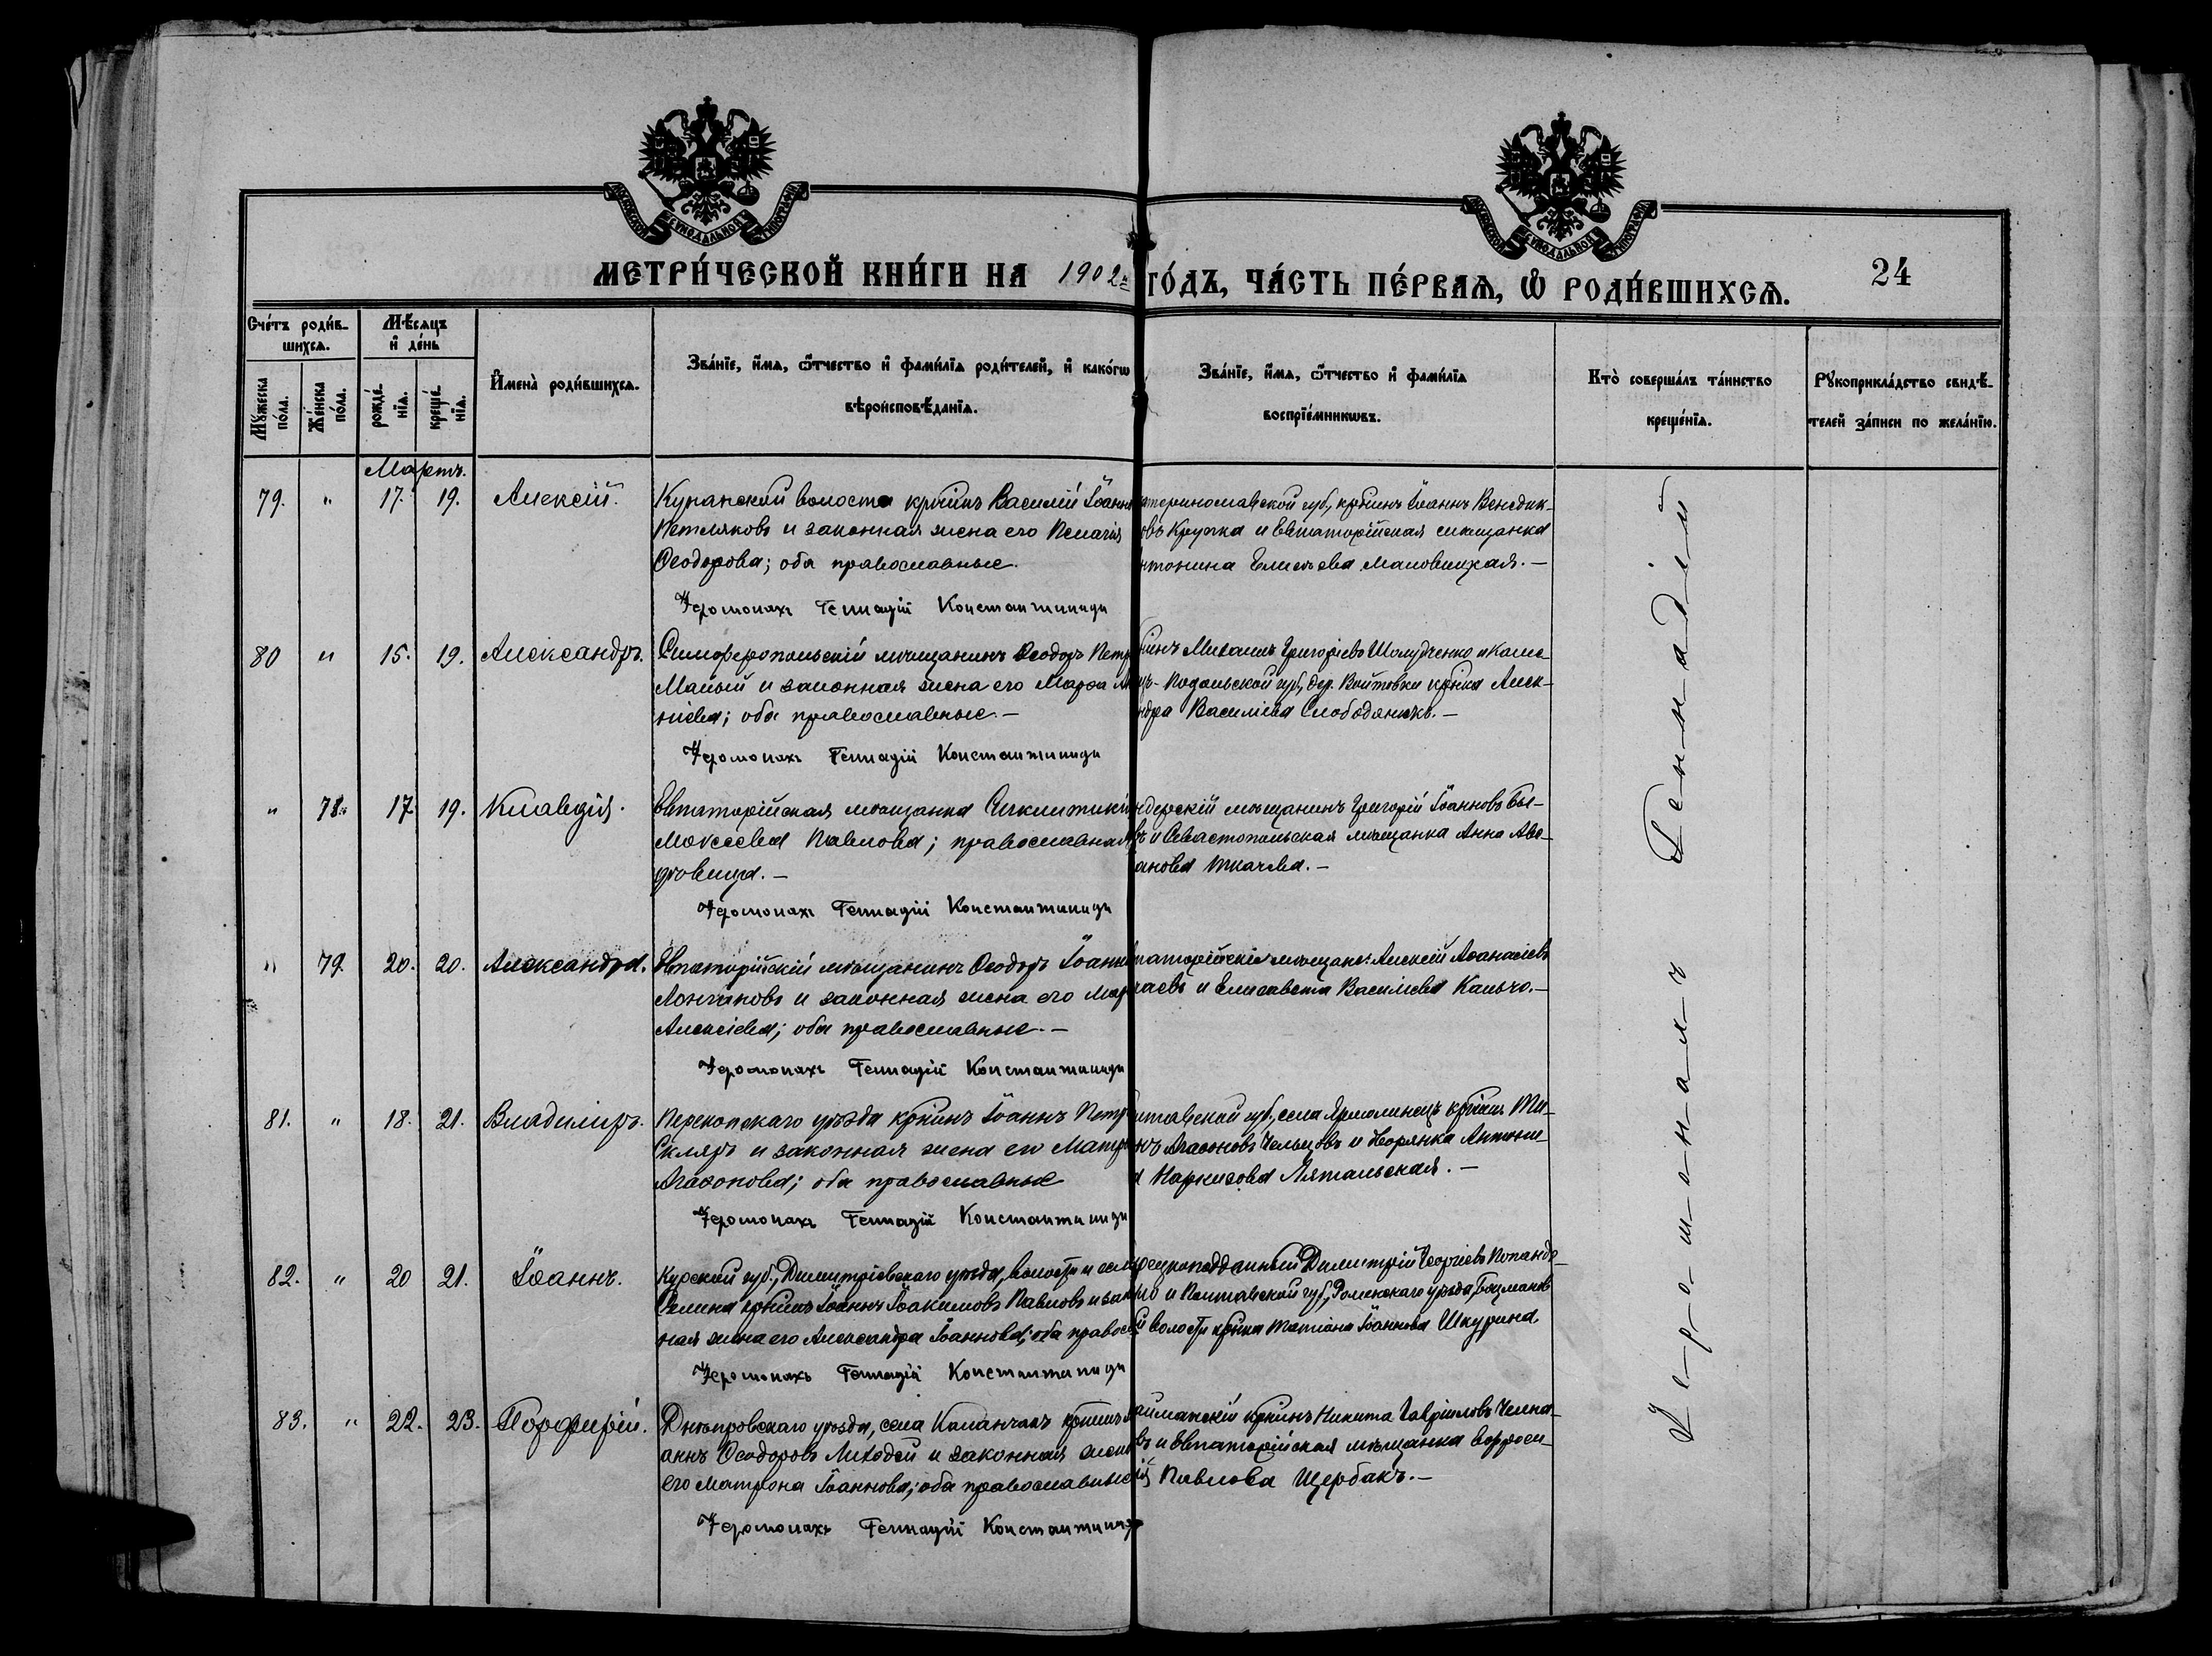 МОСКОВСКОЙ СѴНОДАЛЬНОЙ ТИПОГРАФІИ
МОСКОВСКОЙ СѴНОДАЛЬНОЙ ТИПОГРАФІИ
МЕТРИ́ЧЕСКОЙ КНИ́ГИ НА 1902й ГО́ДЪ, ЧА́СТЬ ПЕ́РВАѦ, Ѡ҆ РОДИ́ВШИХСѦ.
24
Сче́тъ роди́в-
шихсѧ.
Мꙋ́жеска по́ла.
Же́нска по́ла.
Мѣ́сѧцъ и҆ де́нь
рожде́нїѧ.
креще́нїѧ.
И҆мена̀ роди́вшихсѧ.
Зва́нїе, и҆́мѧ, ѻ҆́тчество и҆ фами́лїѧ роди́телей, и҆ како́гѡ
вѣроисповѣ́данїѧ.
Зва́нїе, и҆́мѧ, ѻ҆́тчество и҆ фами́лїѧ
воспрїе́мникѡвъ.
Кто̀ соверша́лъ та́инство
креще́нїѧ.
Рꙋкоприкла́дство свидѣ́-
телей за́писи по жела́нїю.
Мартъ.
79. " 17. 19. Алексій.
Купанской волости крнинъ Василій Іоанн
Петляковъ и законная жена его Пелагія
Ѳеодорова; оба православные.
Іеромонахъ Геннадій Константиниди
атеринославской губ., крнинъ Іоаннъ Венедик-
овъ Кручка и Евпаторійская мѣщанка
нтонина Елисѣева Маловицкая.—
80 " 15. 19. Александръ.
Симферопольскій мѣщанинъ Ѳеодоръ Петр
Малый и законная жена его Марѳа
ніева; оба православные.—
Іеромонахъ Геннадій Константиниди
нинъ Михаилъ Григоріевъ Шолудченко и Каме-
цъ-Подольской губ., дер. Войтовки крнка Алек-
ндра Василіева Слободянюкъ.—
" 78. 17 19. Клавдія.
Евпаторійская мѣщанка
Моксеева Павлова; православная,
довица.—
Іеромонахъ Геннадій Константиниди
ндерскій мѣщанинъ Григорій Іоанновъ Бы-
ъ и Севастопольская мѣщанка Анна Аво-
анова Ткачева.—
" 79. 20. 20. Александра.
Евпаторійскій мѣщанинъ Ѳеодоръ Іоанн
Лончановъ и законная жена его Мар
Алексіева; оба православные.—
Іеромонахъ Геннадій Константиниди
паторійскіе мѣщане: Алексій Аѳанасіевъ
чаевъ и Елисавета Василіева Кальчо.—
81. " 18. 21. Владиміръ.
Перекопскаго уѣзда крнинъ Іоаннъ Петр
Скляръ и законная жена его Матр
Агаѳонова; оба православные
Іеромонахъ Геннадій Константиниди
лтавской губ., села Ярмолинецъ крнинъ Ти-
нъ Агаѳоновъ Чельцовъ и дворянка Антони-
а Наркисова Лятальская.—
82. " 20 21. Іоаннъ.
Курской губ., Димитріевскаго уѣзда, волости и сел
Селина крнинъ Іоаннъ Іоакимовъ Павловъ и зак
ная жена его Александра Іоаннова; оба правос
Іеромонахъ Геннадій Константиниди
рецкоподданный Димитрій Георгіевъ Попандо-
ло и Полтавской губ., Роменскаго уѣзда,
й волости крнка Татіана Іоаннова Шкурина.
83. " 22. 23. Порфирій.
Днѣпровскаго уѣзда, села Каланчакъ крнинъ
аннъ Ѳеодоровъ Лиходей и законная жена
его Матрона Іоаннова; оба православные
Іеромонахъ Геннадій Константиниди
айманскій крнинъ Никита Гавріиловъ Челна-
въ и Евпаторійская мѣщанка Ефроси-
ія Павлова Щербакъ.—
Іеромонахъ Геннадій